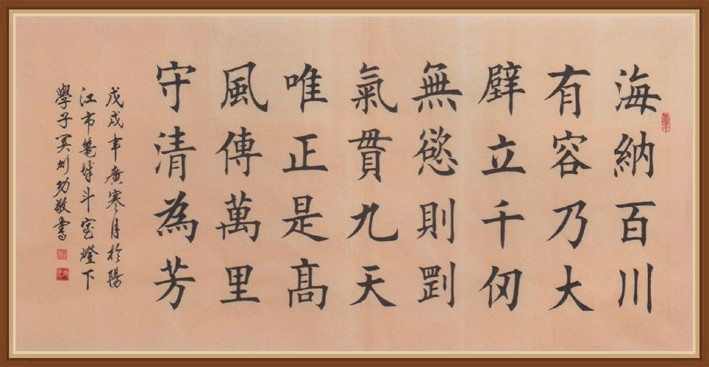 海納百川
有容乃大
壁立千仞
無慾則剛
氣貫九天
唯正是高
風傳萬里
守清為芳
戊戌年廣寒月於陽
江市斗室燈下
學子敬書